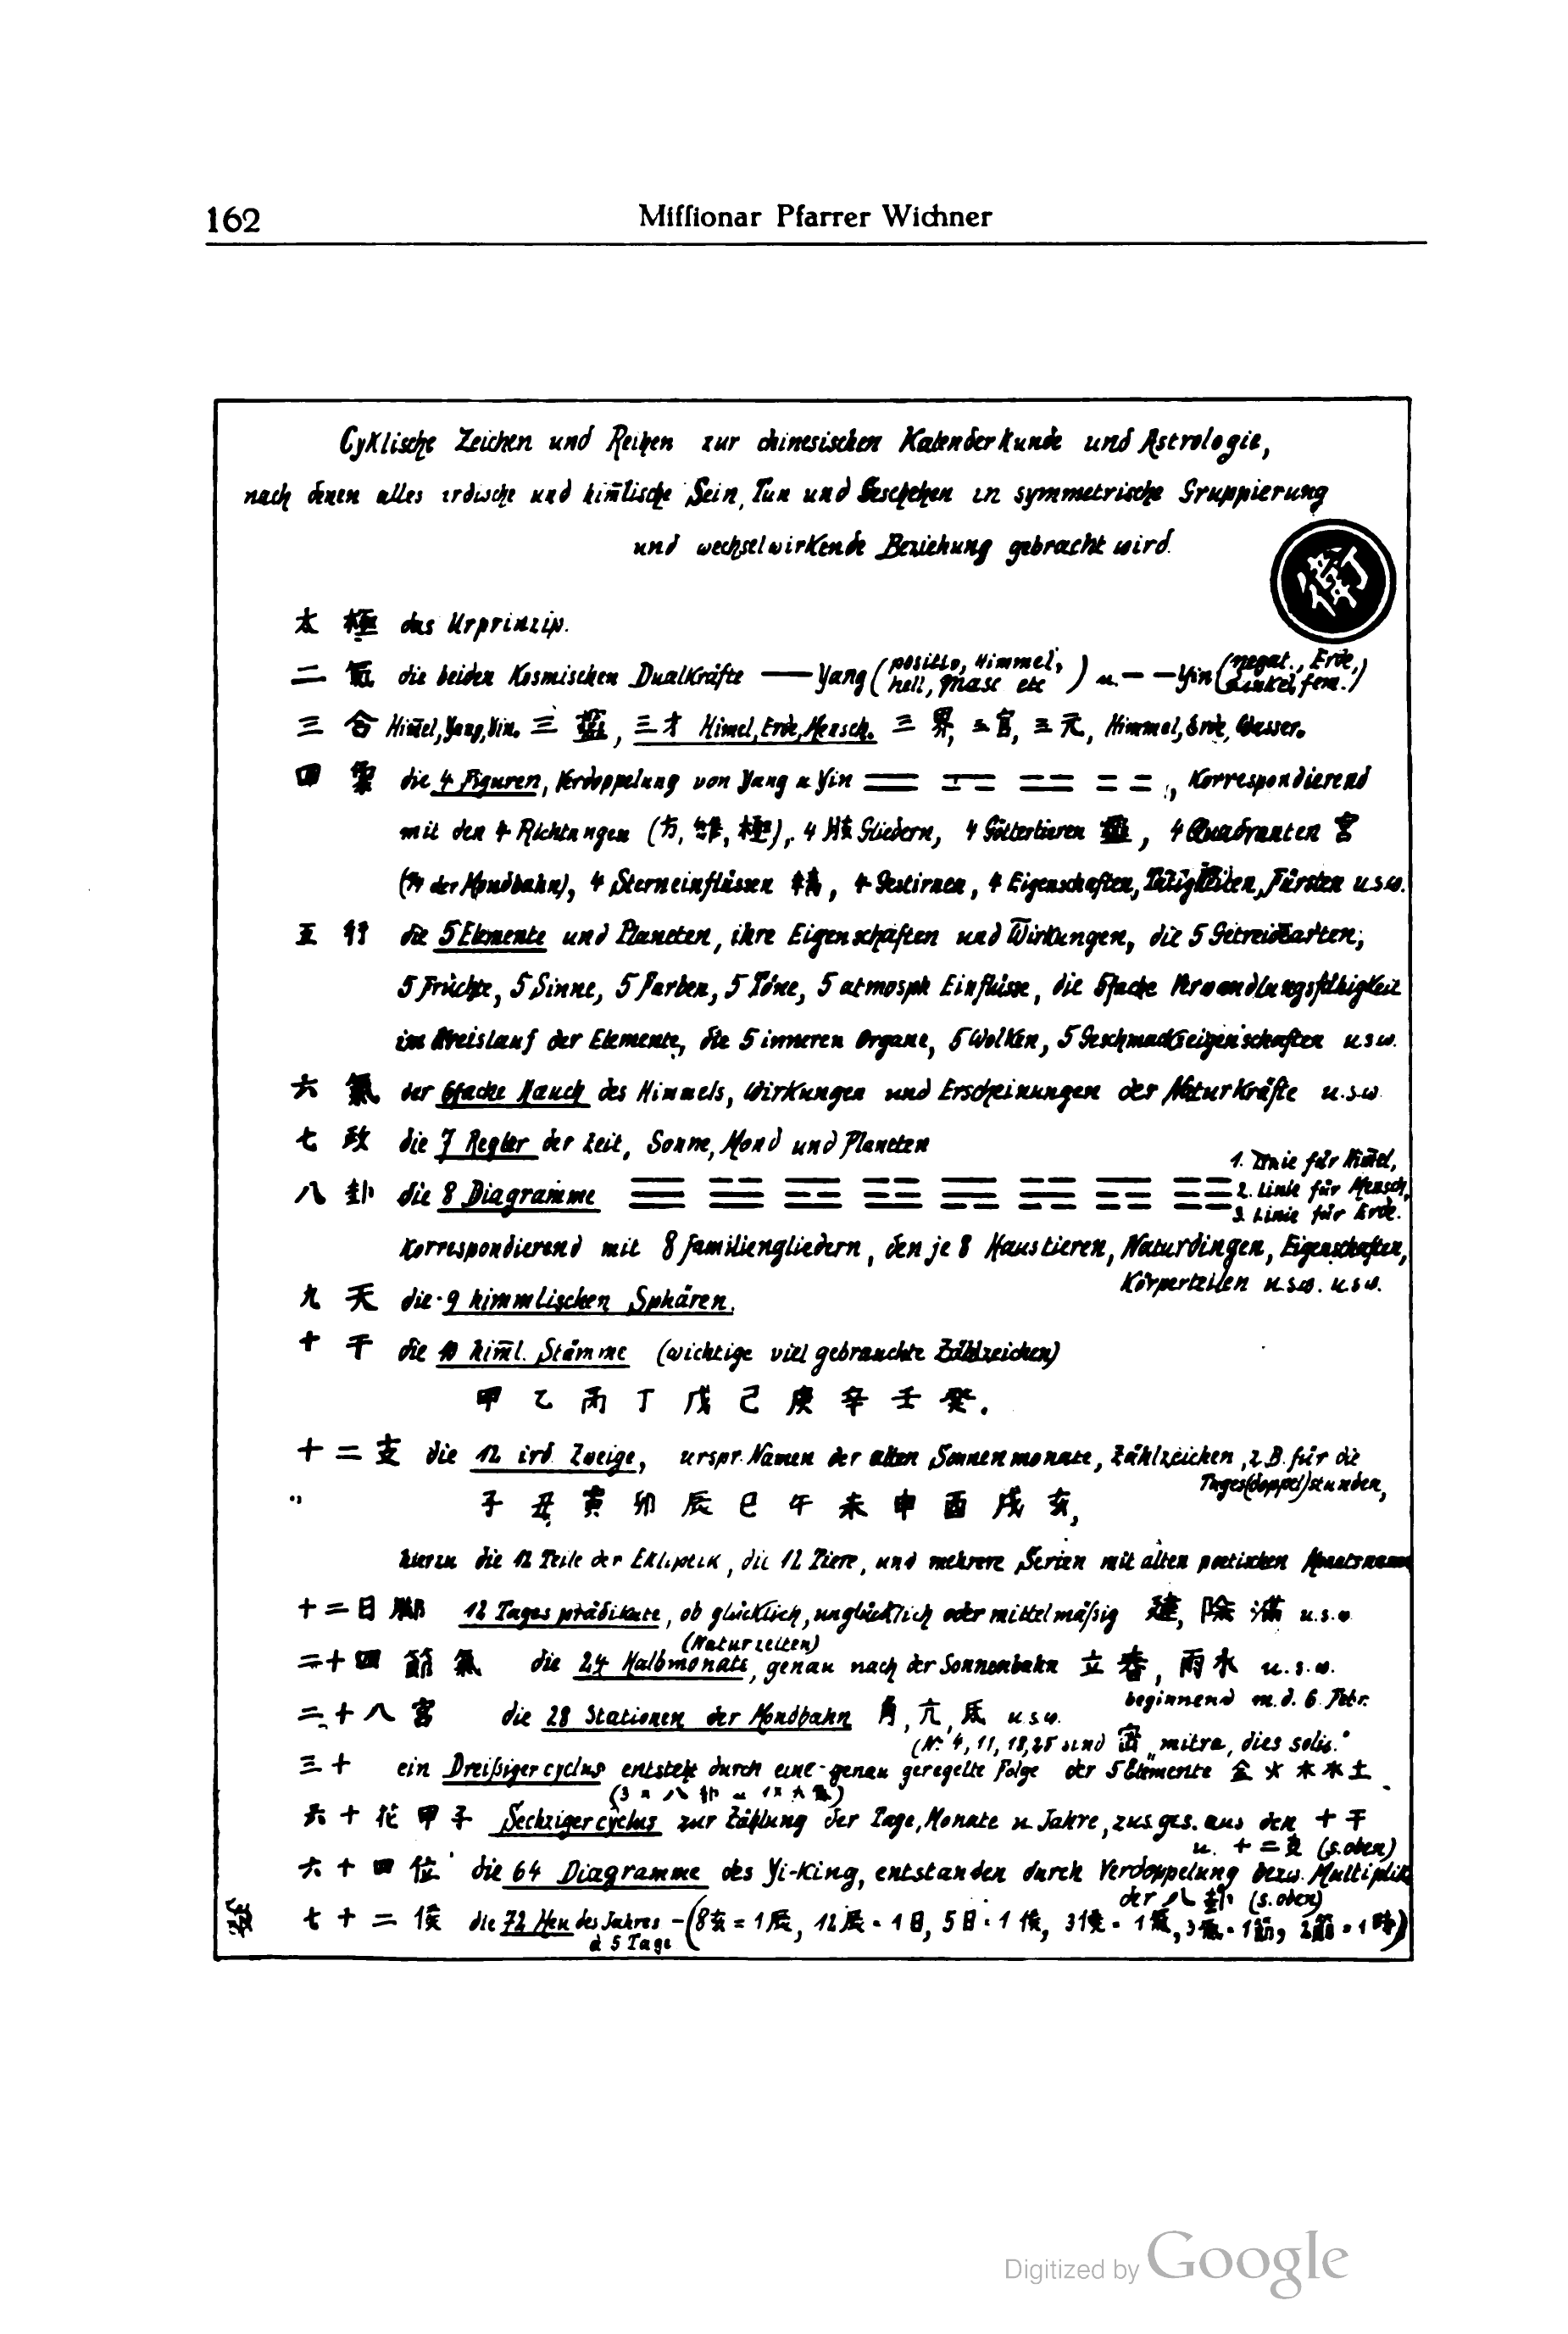 162
Miſſionar Pfarrer Wichner
Cyklische Zeichen und Reihen zur chinesischen Kalenderkunde und Astrologie,
nach denen alles irdische und him̄lische Sein, Tun und Geschehen in symmetrische Gruppierung
und wechselwirkende Beziehung gebracht wird.
太極 das Urprinzip.
二氣 die beiden Kosmischen Dualkräfte — Yang (positiv, Himmel, hell, masc etc) u. – – Yin (negat., Erde, dunkel, fem.)
三合 Him̄el, Yang, Yin. 三 , 三才 Himel, Erde, Mensch. 三界, 三官, 三元, Himmel, Erde, Wasser.
四象 die 4 Figuren, Verdoppelung von Yang u Yin ⚌ ⚍ ⚎ ⚏, Korrespondierend
mit den 4 Richtungen (方, 維, 極), 4 肢 Gliedern, 4 Göttertieren , 4 Quadranten 宮
(¼ der Mondbahn), 4 Sterneinflüssen , 4 Gestirnen, 4 Eigenschaften, Tätigkeiten, Fürsten u.s.w.
五行 die 5 Elemente und Planeten, ihre Eigenschaften und Wirkungen, die 5 Getreidearten,
5 Früchte, 5 Sinne, 5 Farben, 5 Töne, 5 atmosph Einflüsse, die 5fache Verwandlungsfähigkeit
im Kreislauf der Elemente, die 5 inneren Organe, 5 Wolken, 5 Geschmackseigenschaften u.s.w.
六氣 der 6fache Hauch des Himmels, Wirkungen und Erscheinungen der Naturkräfte u.s.w.
七政 die 7 Regler der Zeit, Sonne, Mond und Planeten
1. Linie für Him̄el,
八卦 die 8 Diagramme 2. Linie für Mensch,
3. Linie für Erde.
Korrespondierend mit 8 Familiengliedern, den je 8 Haustieren, Naturdingen, Eigenschaften,
Körperteilen u.s.w. u.s.w.
九天 die 9 himmlischen Sphären.
十干 die 10 him̄l. Stämme (wichtige viel gebrauchte Zählzeichen)
甲乙丙丁戊己庚辛壬癸.
十二支 die 12 ird. Zweige, urspr. Namen der alten Sonnenmonate, Zählzeichen, z.B. für die
Tages(doppel)stunden,
子丑寅卯辰巳午未申酉戌亥,
hierzu die 12 Teile der Ekliptik, die 12 Tiere, und mehrere Serien mit alten poetischen Monatsnamen
十二日脚 12 Tagesprädikate, ob glücklich, unglücklich oder mittelmäßig 建, 除 滿 u.s.w.
(Naturzeiten)
二十四節氣 die 24 Halbmonate, genau nach der Sonnenbahn 立春, 雨水 u.s.w.
beginnend m.d. 6. Febr.
二十八宮 die 28 Stationen der Mondbahn 角, 亢, 氐 u.s.w.
(Nr. 4, 11, 18, 25 sind 密 „mitra, dies solis."
三十 ein Dreißigercyclus entsteht durch eine genau geregelte Folge der 5 Elemente 金火木水土
六十花甲子 Sechzigercyclus zur Zählung der Tage, Monate u. Jahre, zus.ges. aus den 十干
u. 十二支 (s. oben)
六十四位 die 64 Diagramme des Yi-King, entstanden durch Verdoppelung bezw. Multiplik
der 八卦 (s. oben)
七十二候 die 72 Heu des Jahres – (8刻 = 1辰, 12辰 = 1日, 5日 = 1候, 3候 = 1氣, 3氣 = 1節, 2節 = 1時)
à 5 Tage
Digitized by Google